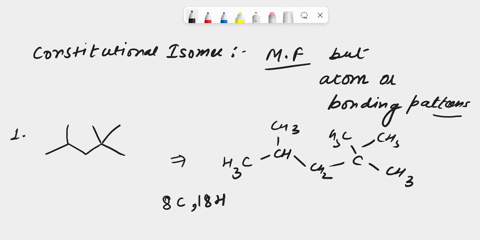 Constitutional Isomer :- M.F but
atom or
bonding patterns
1.
⇒ H₃C CH CH₃ CH₂ C H₃C CH₃ CH₃
8C, 18H